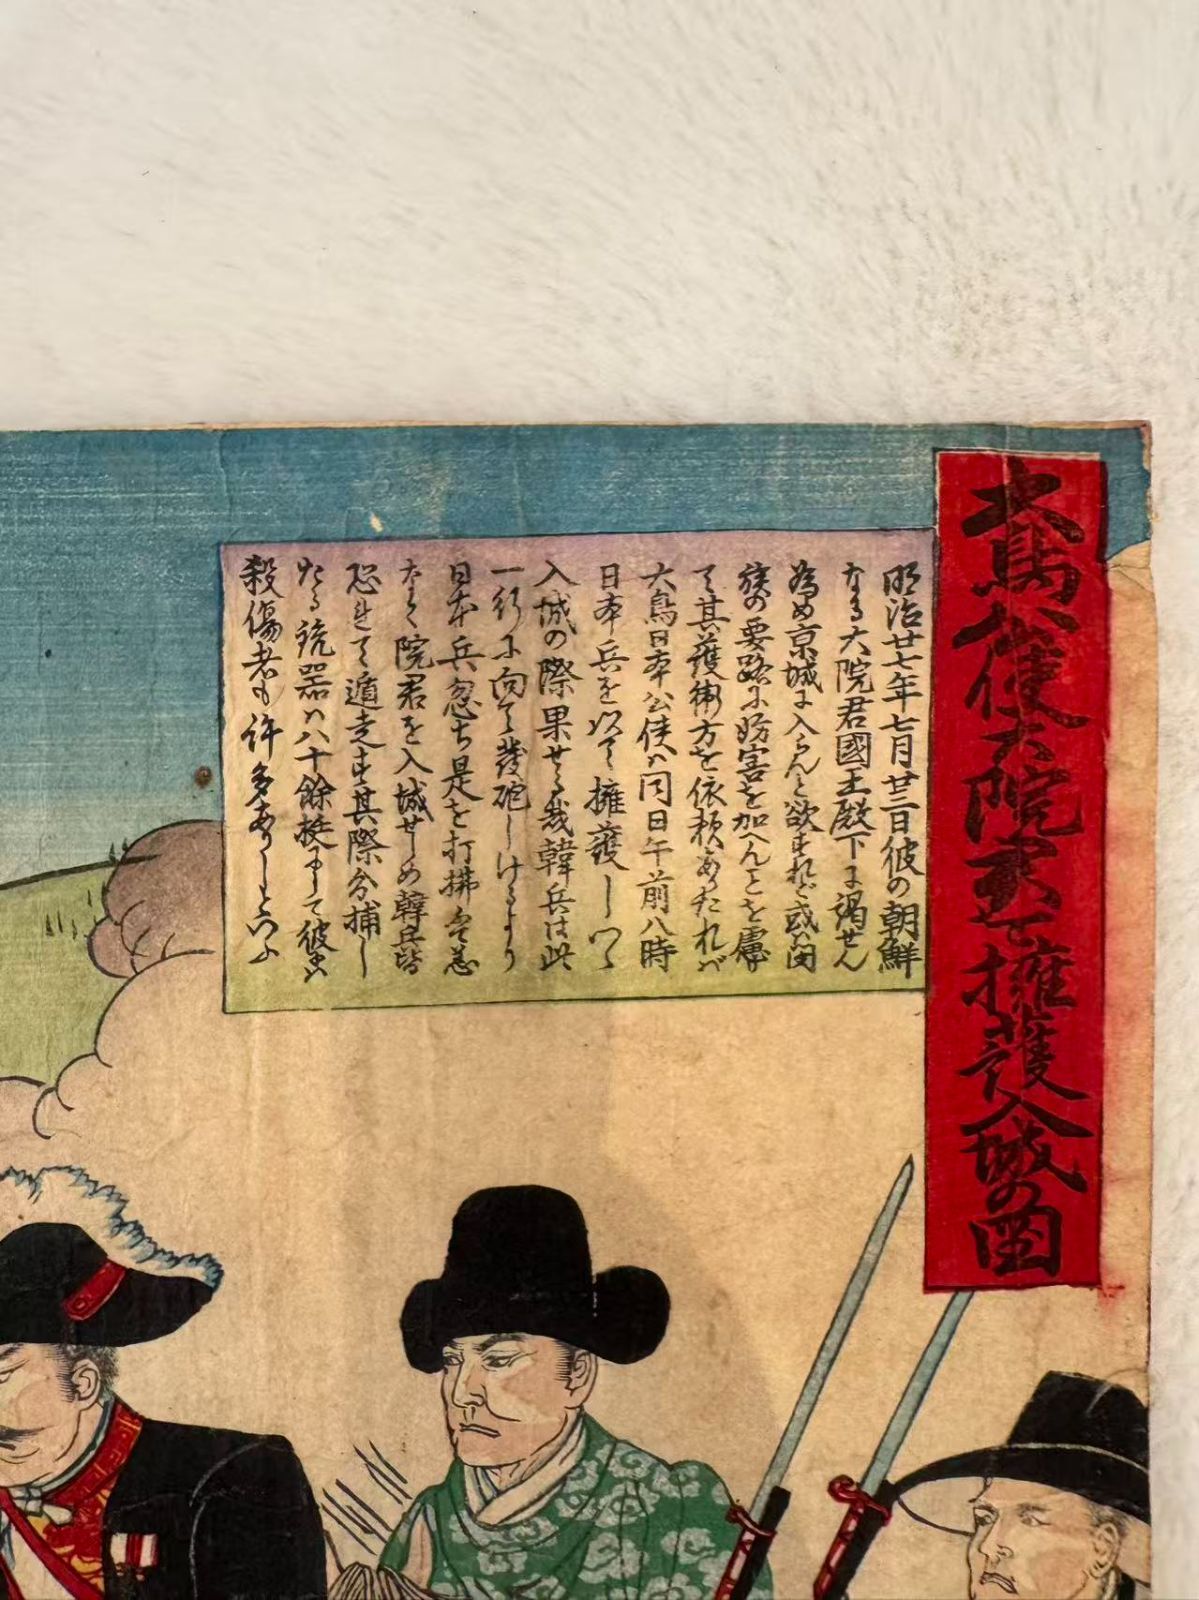 大鳥公使大院君を擁護入城の図
明治廿七年七月廿三日彼の朝鮮
なる大院君國王殿下に謁せん
為め京城に入らんと欲すれど或は閔
族の要路に妨害を加へんことを慮り
て其護衛方を依頼ありたれバ
大鳥日本公使ハ同日午前八時
日本兵を以て擁護しつゝ
入城の際果せる哉韓兵は此
一行に向て發砲しけるより
日本兵忽ち是を打拂
なく院君を入城せしめ韓兵皆
恐れて遁走す其際分捕し
たる銃器ハ八十餘挺にして彼
殺傷者も許多ありしといふ